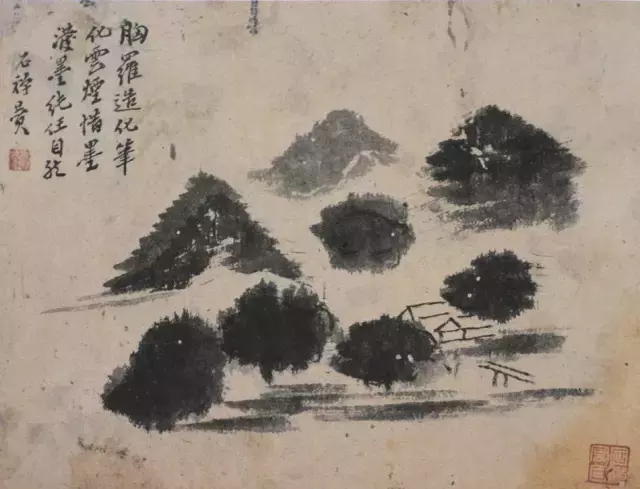 胸羅造化筆
化雲煙惜墨
潑墨純任自然
石禪贊